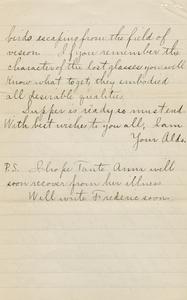 birds escaping from the field of
vision. If you remember the
character of the lost glasses you will
know what to get; they embodied
all desirable qualities.
Supper is ready so must end.
With best wishes to you all, I am
Your Aldo.
P.S. I hope Tante Anna will
soon recover from her illness.
Will write Frederic soon.